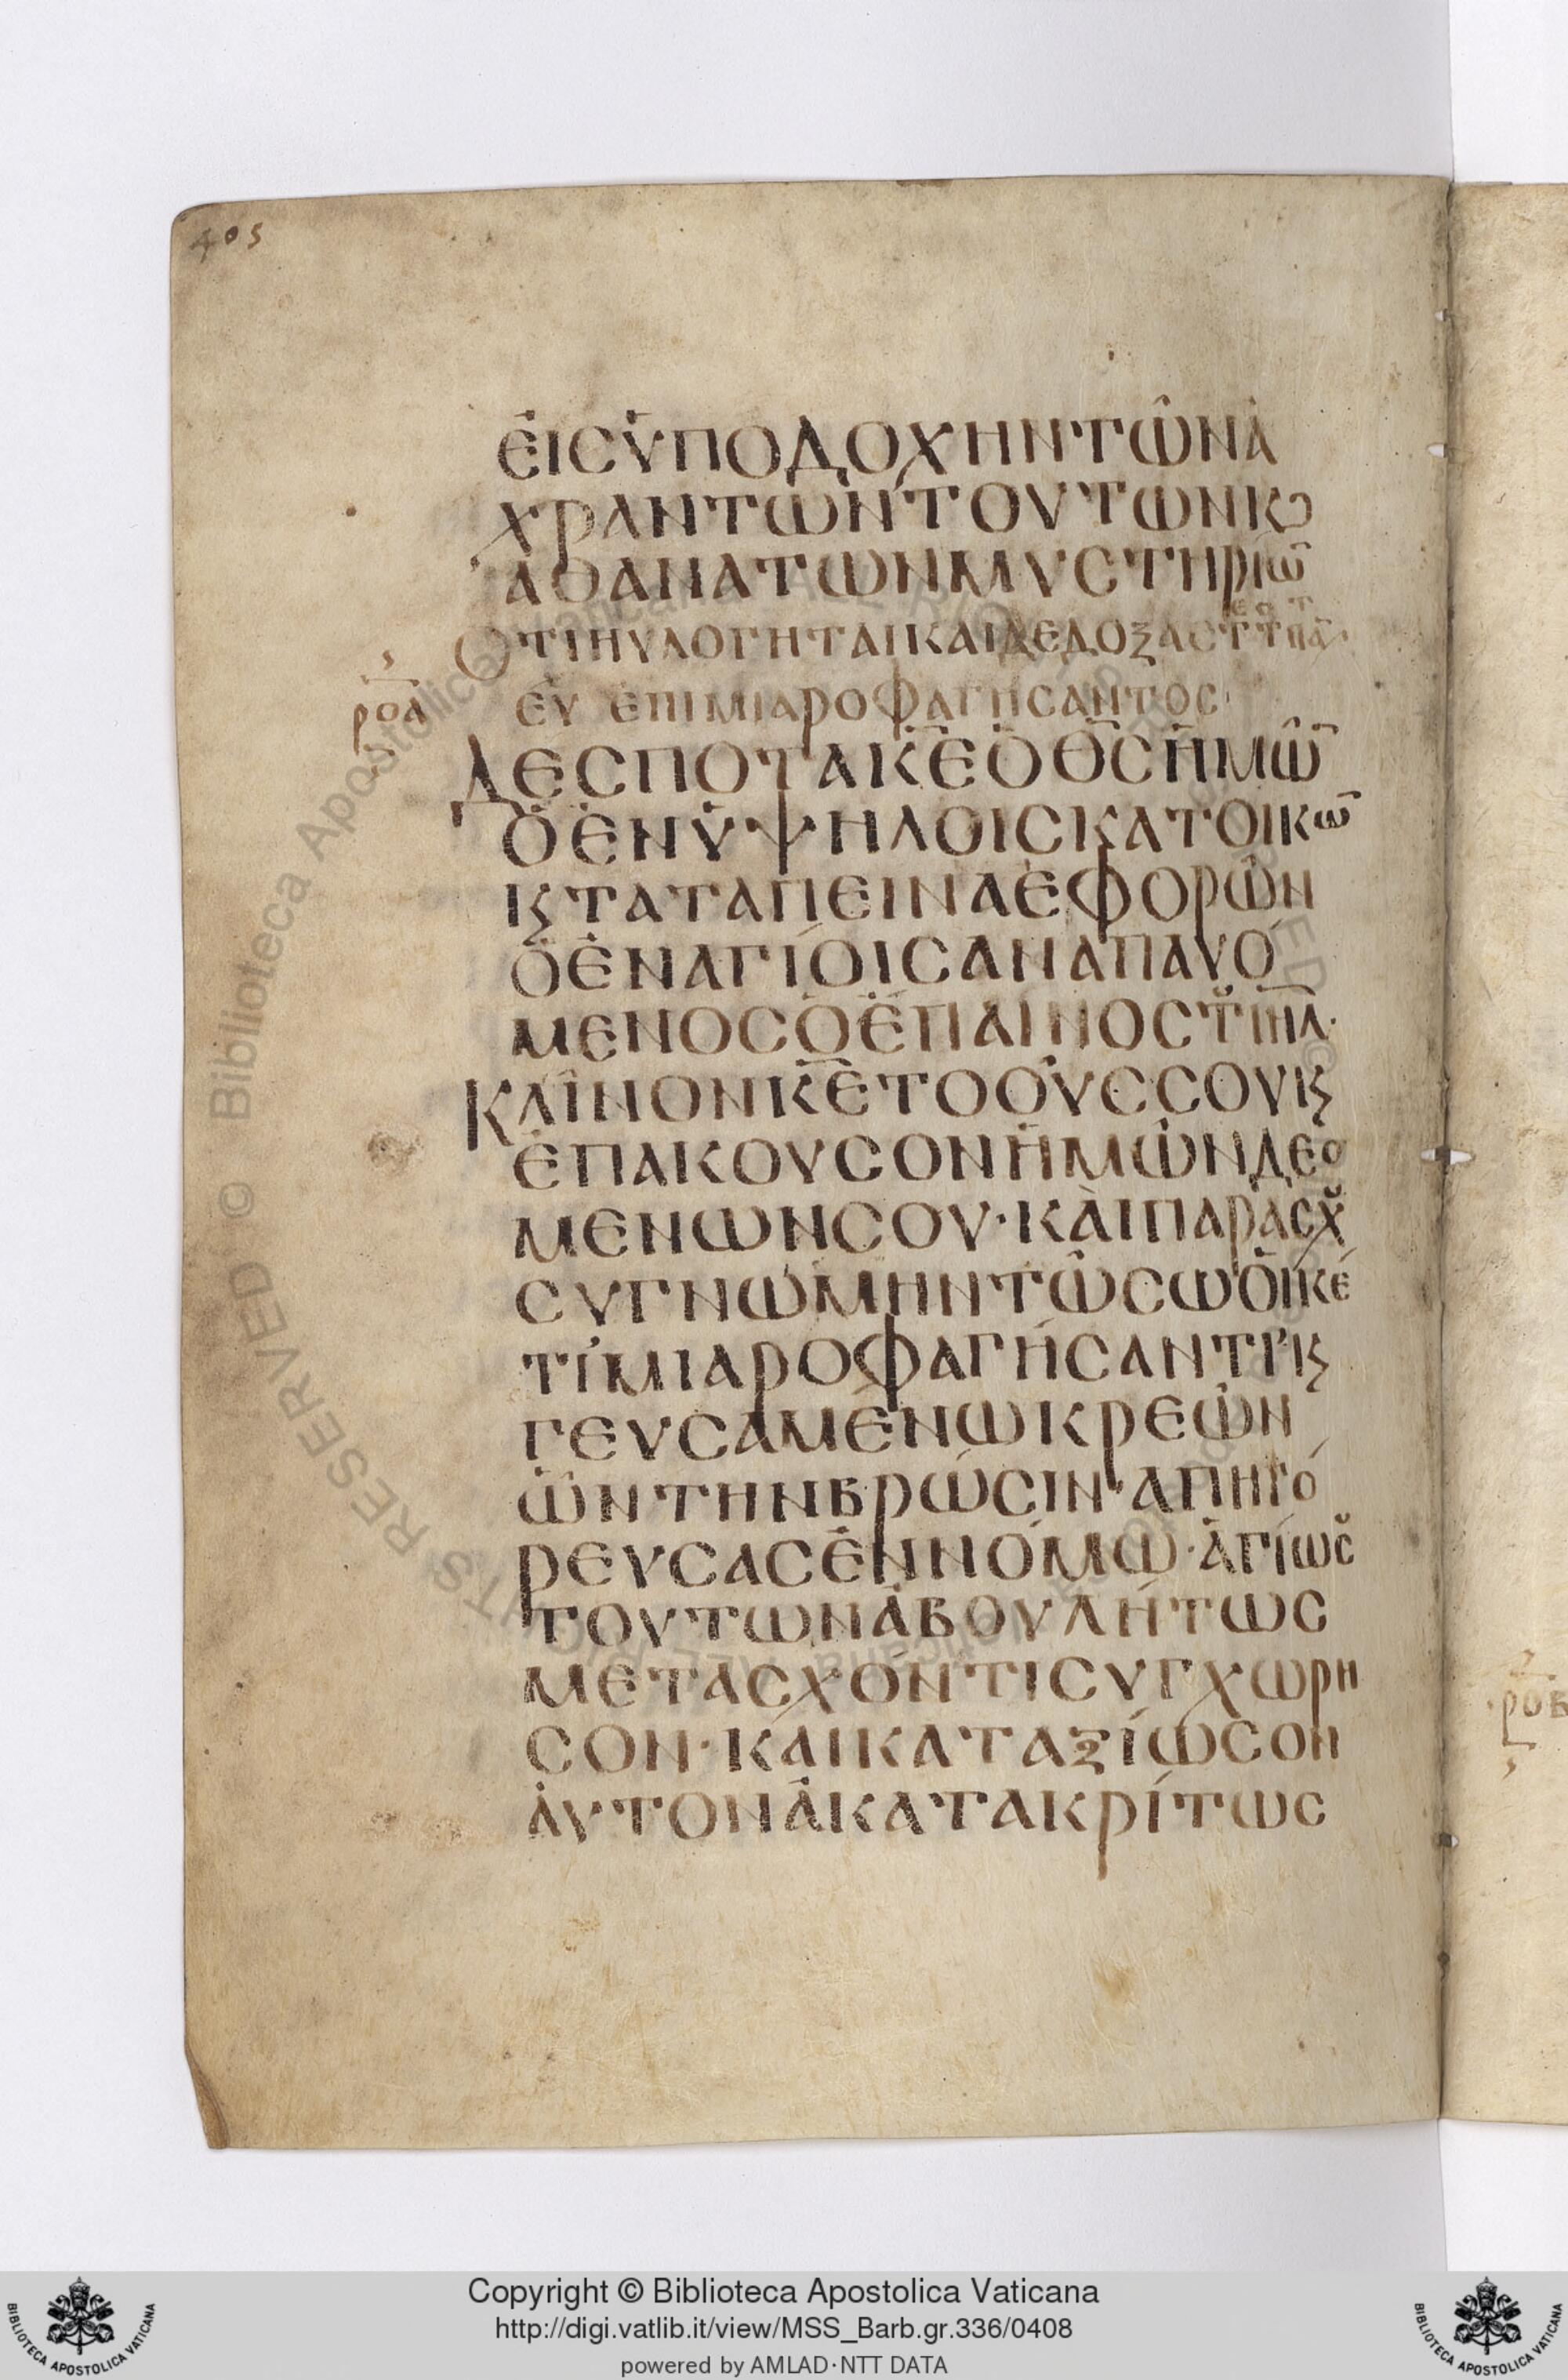 405
ἐιςὑποδοχηντῶνἀ
χραντωντουτωνκ̣
αθανατωνμυςτηρίω̅
Οτιηυλογηταικαιδεδοξαςτ
ροα
ευ επιμιαροφαγηςαντος
Δεςποτακ̅ε̅ὁθ̅ς̅ημω̅
ὁἐνὑψηλοιςκατοικω̅
ϗταταπειναἐφορῶν
ὁἐναγίοιςαναπαυο
μενοςὁἐπαινοςτ̆ιη̅λ̅·
Κλῖνονκ̅ε̅τοοὐςςουϗ
ἐπακουςονημῶνδεο
μενωνςου·κὰιπαράςχȣ
ςυγνώμηντῶςωὀικέ
τίμιαροφαγήςαντιϗ
γευςαμένωκρεῶν
ὧντηνβρῶςιν·απηγό
ρευςαςἐννόμω·ἁγίως
τουτωνἀβουλήτως
μεταςχόντιςυγχωρη
ςον·κάικαταξίωςον
ἀυτονἀκατακρίτως
ροβ
Copyright © Biblioteca Apostolica Vaticana
http://digi.vatlib.it/view/MSS_Barb.gr.336/0408
powered by AMLAD·NTT DATA
BIBLIOTECA APOSTOLICA VATICANA
BIBLIOTECA APOSTOLICA VATICANA